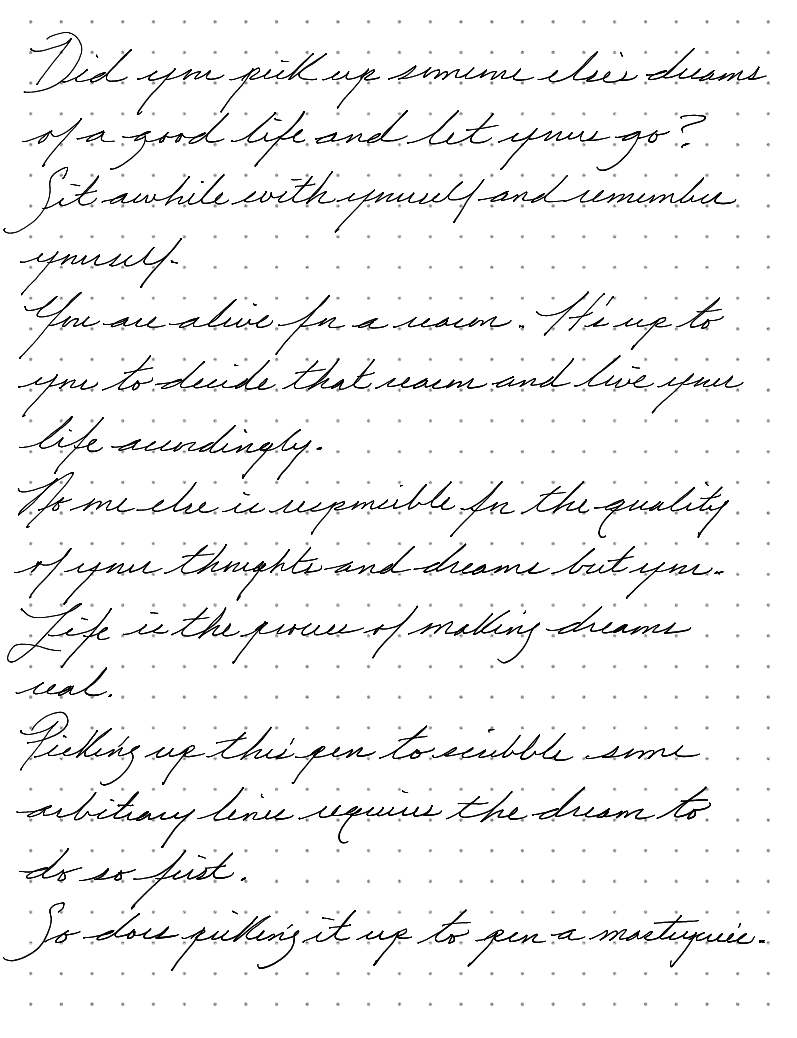 Did you pick up someone else's dreams
of a good life and let yours go?
Sit awhile with yourself and remember
yourself.
You are alive for a reason. It's up to
you to decide that reason and live your
life accordingly.
No one else is responsible for the quality
of your thoughts and dreams but you.
Life is the process of making dreams
real.
Picking up this pen to scribble some
arbitrary lines requires the dream to
do so first.
So does picking it up to pen a masterpiece.